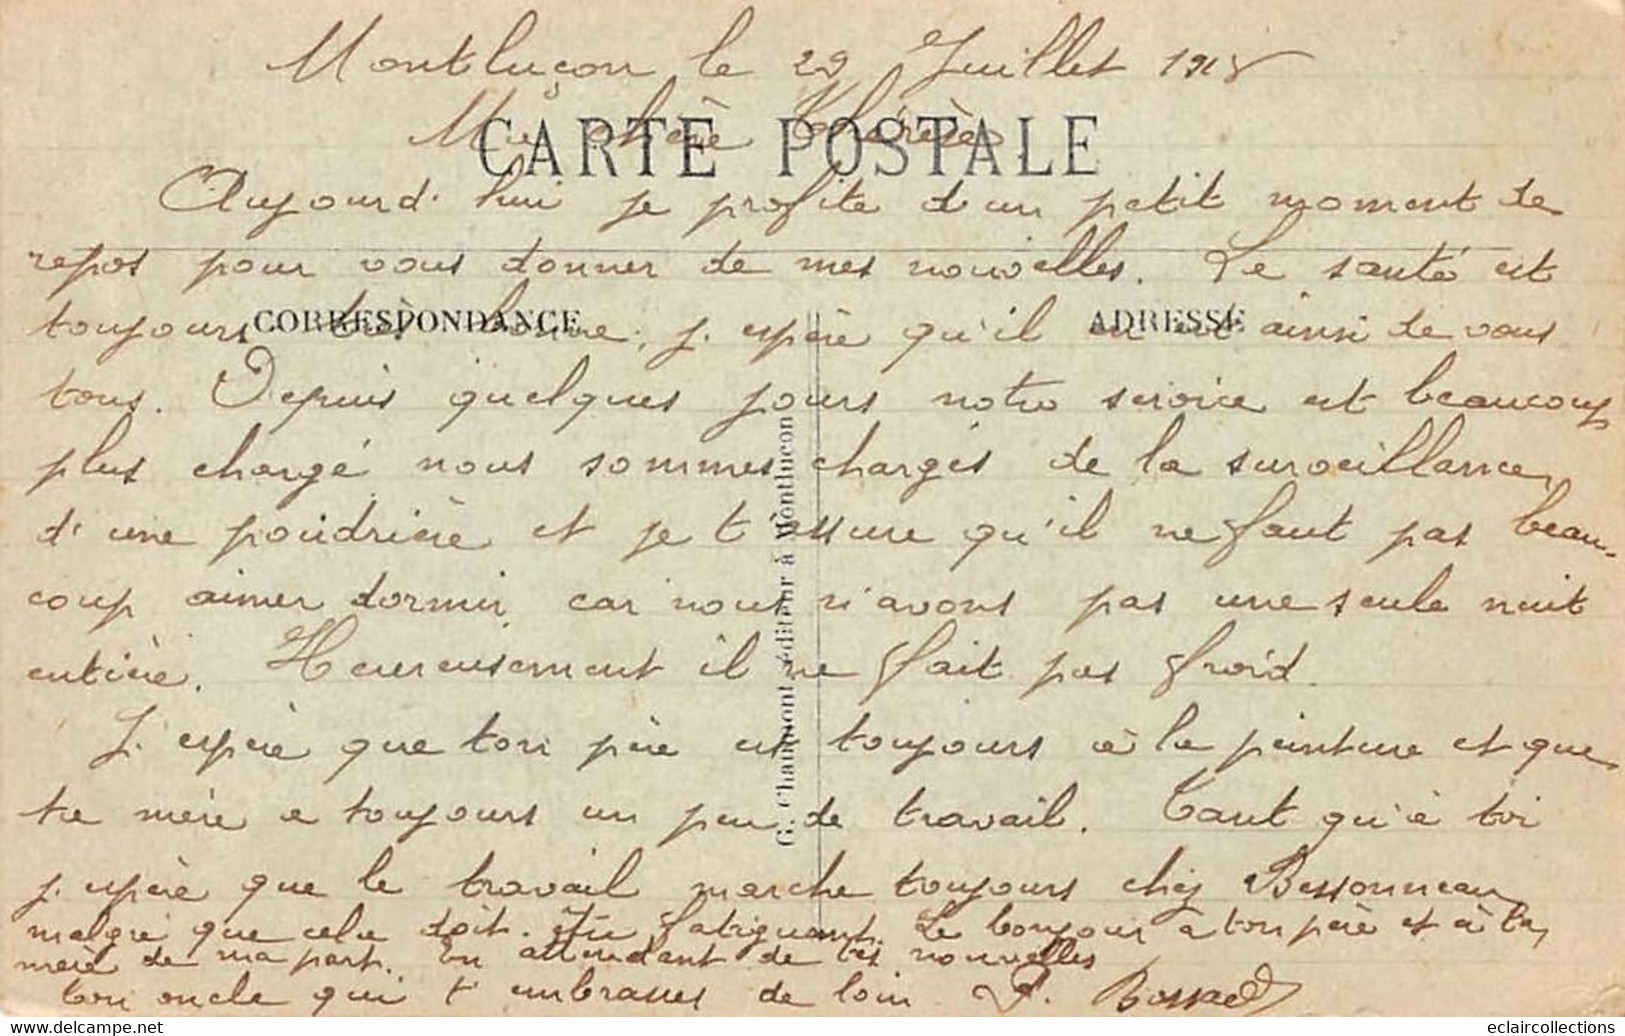 Montluçon le 29 Juillet 1918
Ma chère Thérèse
CARTE POSTALE
Aujourd'hui je profite d'un petit moment de
repos pour vous donner de mes nouvelles. La santé est
toujours très bonne, j'espère qu'il en est ainsi de vous
CORRESPONDANCE
ADRESSE
tous. Depuis quelques jours notre service est beaucoup
plus chargé nous sommes chargés de la surveillance
d'une poudrière et je t'assure qu'il ne faut pas beau-
coup aimer dormir, car nous n'avons pas une seule nuit
entière. Heureusement il ne fait pas froid.
J'espère que ton père est toujours à la peinture et que
ta mère a toujours un peu de travail. Tant qu'à toi
j'espère que le travail marche toujours chez Bessonneau
malgré que cela doit être fatiguant. Le bonjour a ton père et à ta
mère de ma part. En attendant de tes nouvelles
ton oncle qui t'embrasses de loin P.
G. Chaumont éditeur à Montluçon
eclaircollections
www.delcampe.net